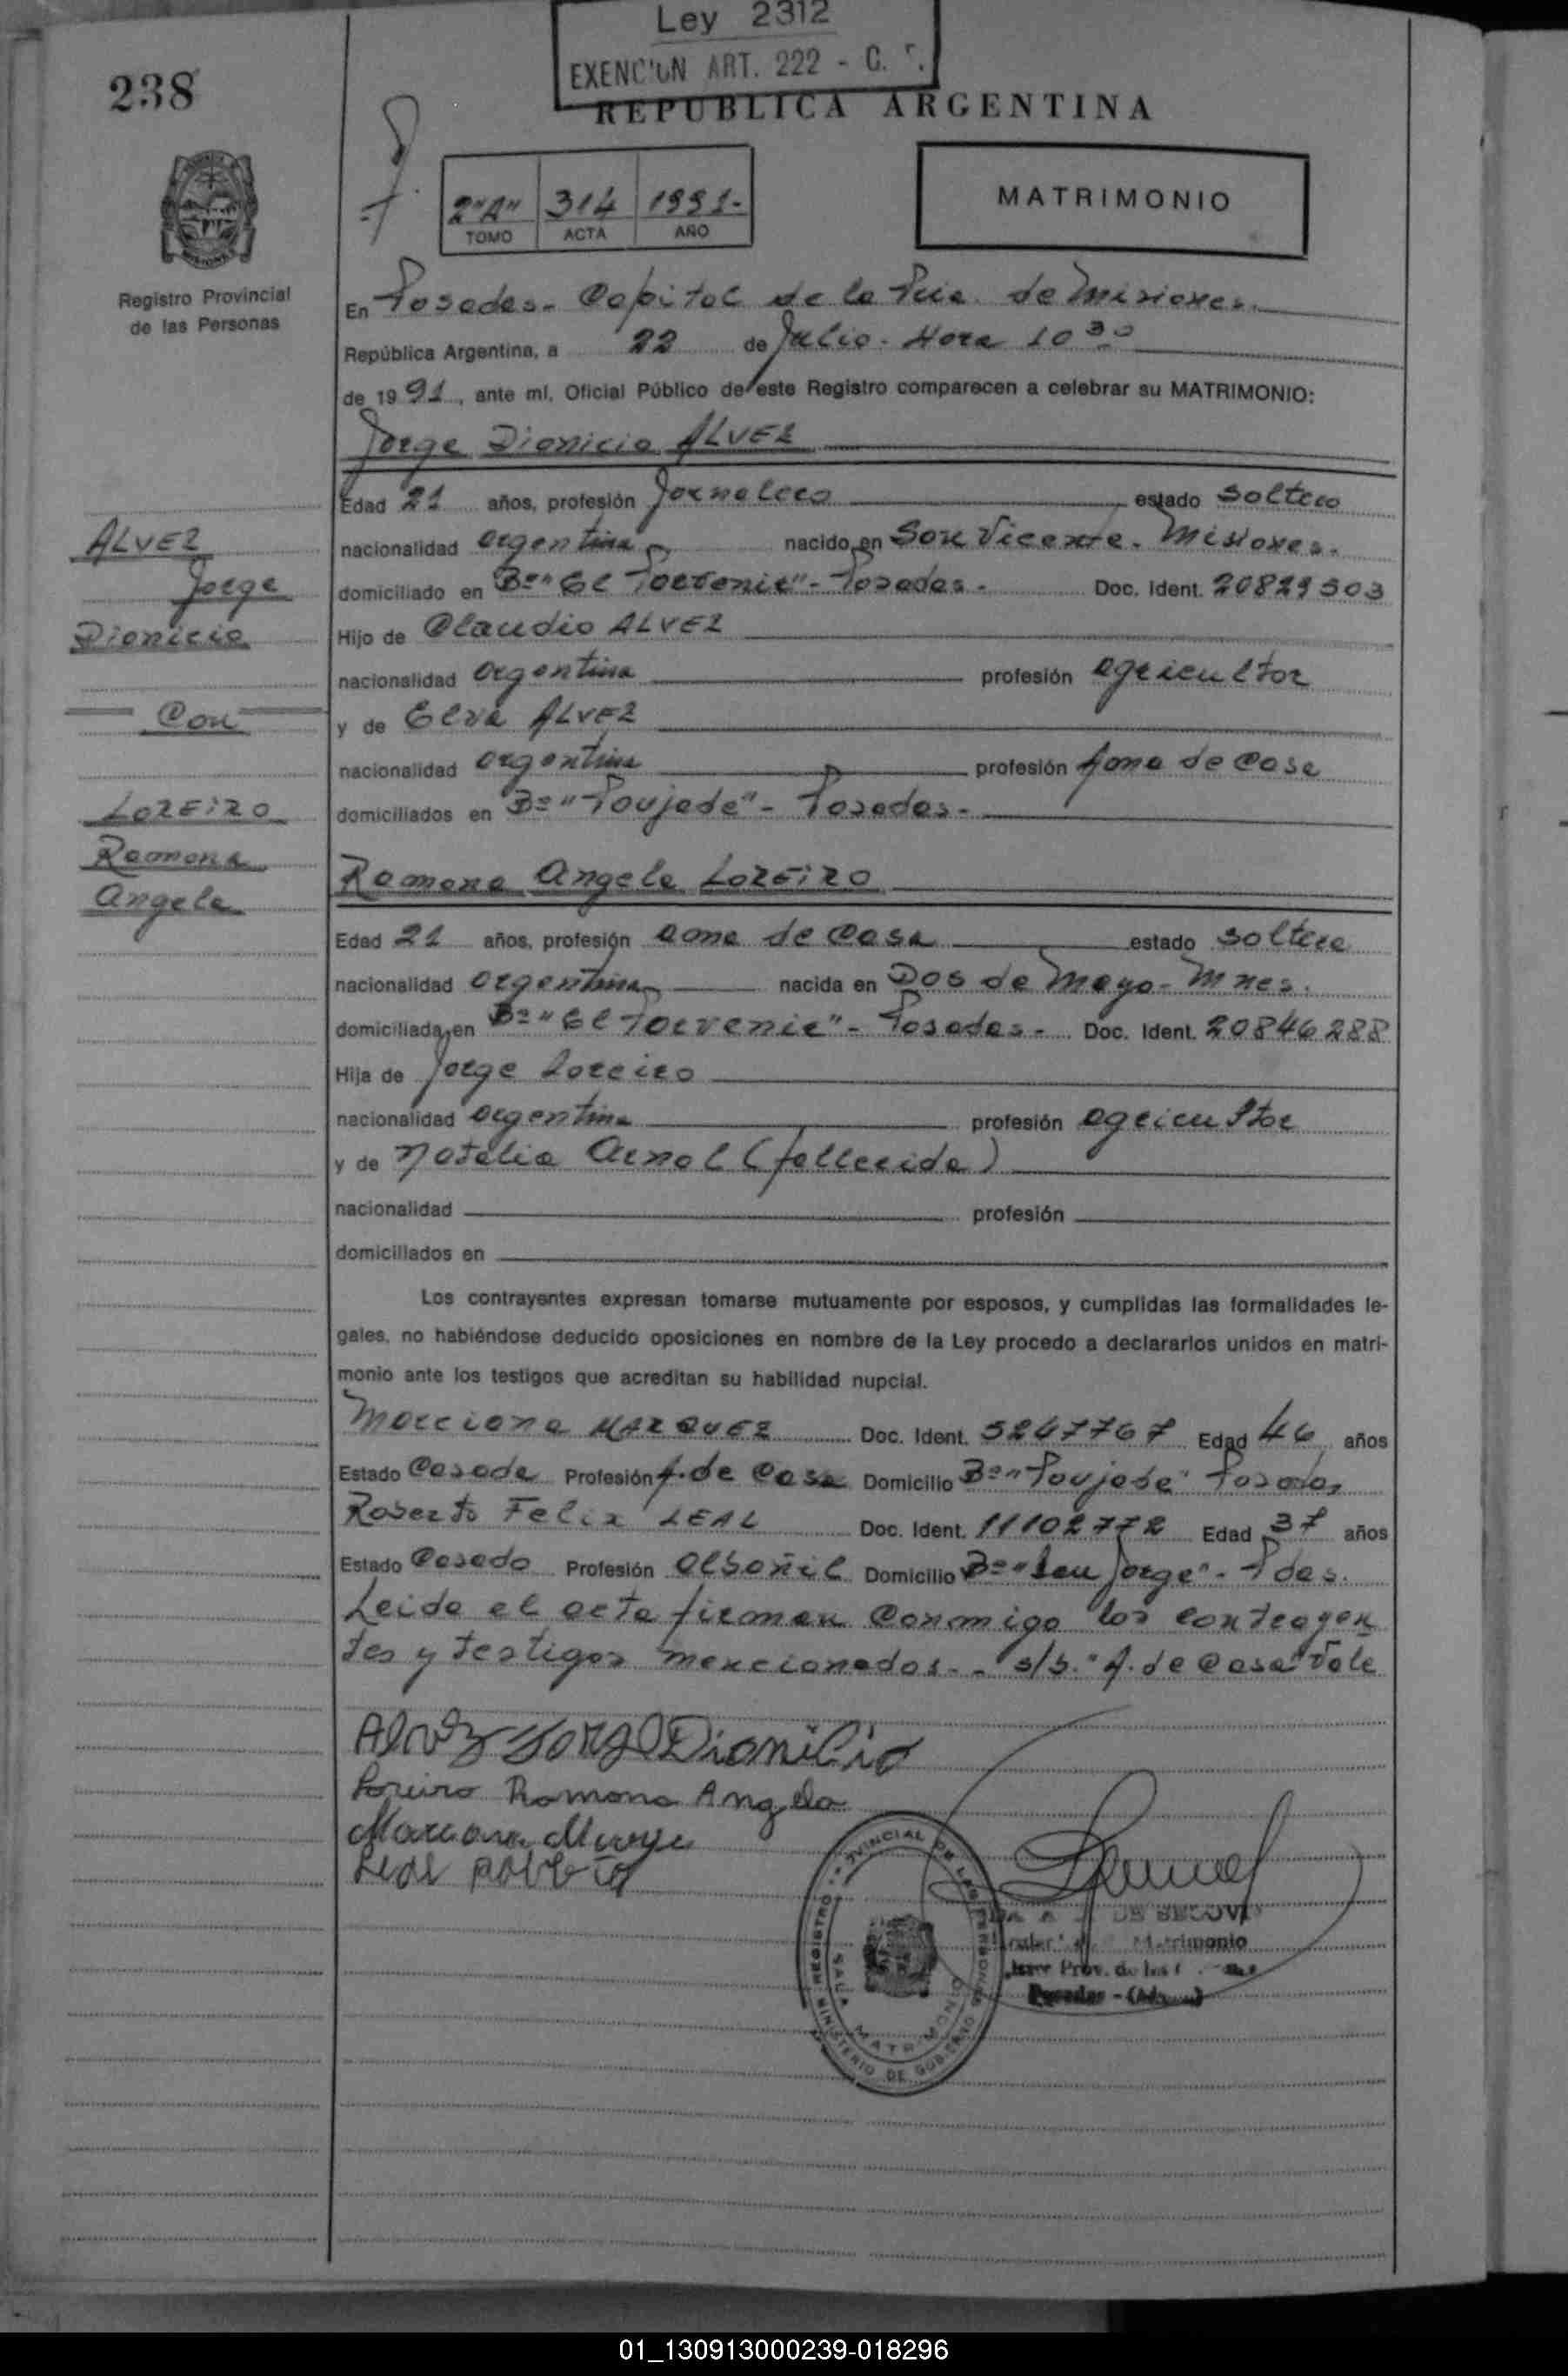 Ley 2312
EXENCION ART. 222 - C.
238
REPUBLICA ARGENTINA
2"A" 314 1991-
TOMO ACTA AÑO
MATRIMONIO
Registro Provincial
de las Personas
En Posadas- Capital de la Pcia. de Misiones.
República Argentina, a 22 de Julio- Hora 10 30
de 1991, ante mí, Oficial Público de este Registro comparecen a celebrar su MATRIMONIO:
Jorge Dionicio ALVEZ
Edad 21 años, profesión Jornalero estado soltero
nacionalidad argentina nacido en San Vicente- Misiones-
domiciliado en Bº "El Porvenir"- Posadas- Doc. Ident. 20829503
Hijo de Claudio ALVEZ
nacionalidad argentina profesión agricultor
y de Elva ALVEZ
nacionalidad argentina profesión Ama de Casa
domiciliados en Bº "Poujade"- Posadas-
ALVEZ
Jorge
Dionicio
Con
LOREIRO
Ramona
Angela
Ramona Angela LOREIRO
Edad 21 años, profesión ama de casa estado soltera
nacionalidad argentina nacida en Dos de Mayo- Mnes.
domiciliada en Bº "El Porvenir"- Posadas- Doc. Ident. 20846288
Hija de Jorge Loreiro
nacionalidad argentina profesión agricultor
y de Natalia Arnol (fallecida)
nacionalidad profesión
domiciliados en
Los contrayentes expresan tomarse mutuamente por esposos, y cumplidas las formalidades le-
gales, no habiéndose deducido oposiciones en nombre de la Ley procedo a declararlos unidos en matri-
monio ante los testigos que acreditan su habilidad nupcial.
Marciona MARQUEZ Doc. Ident. 5247767 Edad 46 años
Estado Casada Profesión A. de Casa Domicilio Bº "Poujade" Posadas
Roberto Felix LEAL Doc. Ident. 11102772 Edad 37 años
Estado Casado Profesión Albañil Domicilio Bº "San Jorge"- Pdas.
Leida el acta firman conmigo los contrayen
tes y testigos mencionados.- s/b. "A. de Casa" Vale
Alvez Jorge Dionicio
Loreiro Ramona Angela
Leal Roberto
REGISTRO PROVINCIAL DE LAS PERSONAS
SALA MATRIMONIO
MINISTERIO DE GOBIERNO
DE SEGOVI
Matrimonio
Prov. de las
Posadas - (Mnes)
01_130913000239-018296